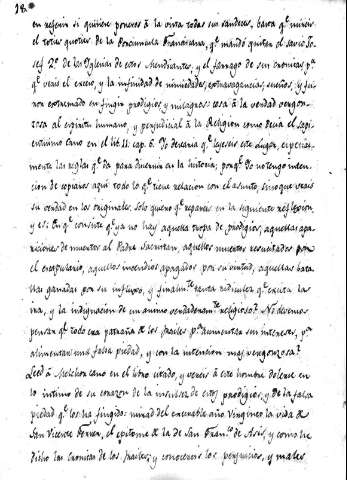 18.
en referir si quisiere poneros à la vista todas sus sandeces. Basta que mireis
el toties quoties de la Porciuncula Franciscana, que mandó quitar el savio Jo-
sef 2.º de las Iglesias de estos Mendicantes, y el farrago de sus cronicas pª
que veais el exceso, y la infinidad de nimiedades, extravagancias, sueños, y
non extremado en fingir prodigios, y milagros: cosa à la verdad vergon-
zosa al espiritu humano, y perjudicial à la Religion como decia el sapi-
entisimo Cano en el lib. 11. cap. 6. Yo desearia que leyeseis este lugar, especial-
mente las reglas que da para discernir en la historia; porque Yo no tengo inten-
cion de copiaros aqui todo lo que tiene relacion con el asunto, sino que veais
su verdad en los originales. Solo quiero que repareis en la siguiente reflexion,
y es: En que consiste que ya no hay aquella tropa de prodigios, aquellas apa-
riciones de muertos al Padre Sacristan, aquellos muertos resucitados por
el escapulario, aquellos incendios apagados por su virtud, aquellas bata-
llas ganadas por su influxo, y finalmte tanta ridiculez que excita la ri-
sa, y la indignacion de un animo verdaderamte religioso? No devemos
pensar que todo era patraña de los frailes pª aumentar sus intereses, pª
alimentar una falsa piedad, y con la intencion mas vergonzosa?
Leed à Melchor Cano en el libro citado, y vereis à este hombre dolerse en
lo intimo de su corazon de la impostura de estos prodigios, y de la falsa
piedad que los ha fingido: mirad del execrable año Virgineo la vida de
San Vicente Ferrer, el epitome de la de San Franco de Asis, y como he
dicho las cronicas de los frailes; y conocereis los perjuicios, y males